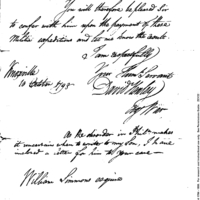 You will therefore be pleased Sir
to confer with him upon the payment of these
Militia expeditions and let me know the result.
I am respectfully
Your Hum Servant
Knoxville
10 October 1793
David Henley
As the disorder in Phila makes
it uncertain when to write to my Son, I have
inclosed a letter for him to your care —
William Simmons esquire